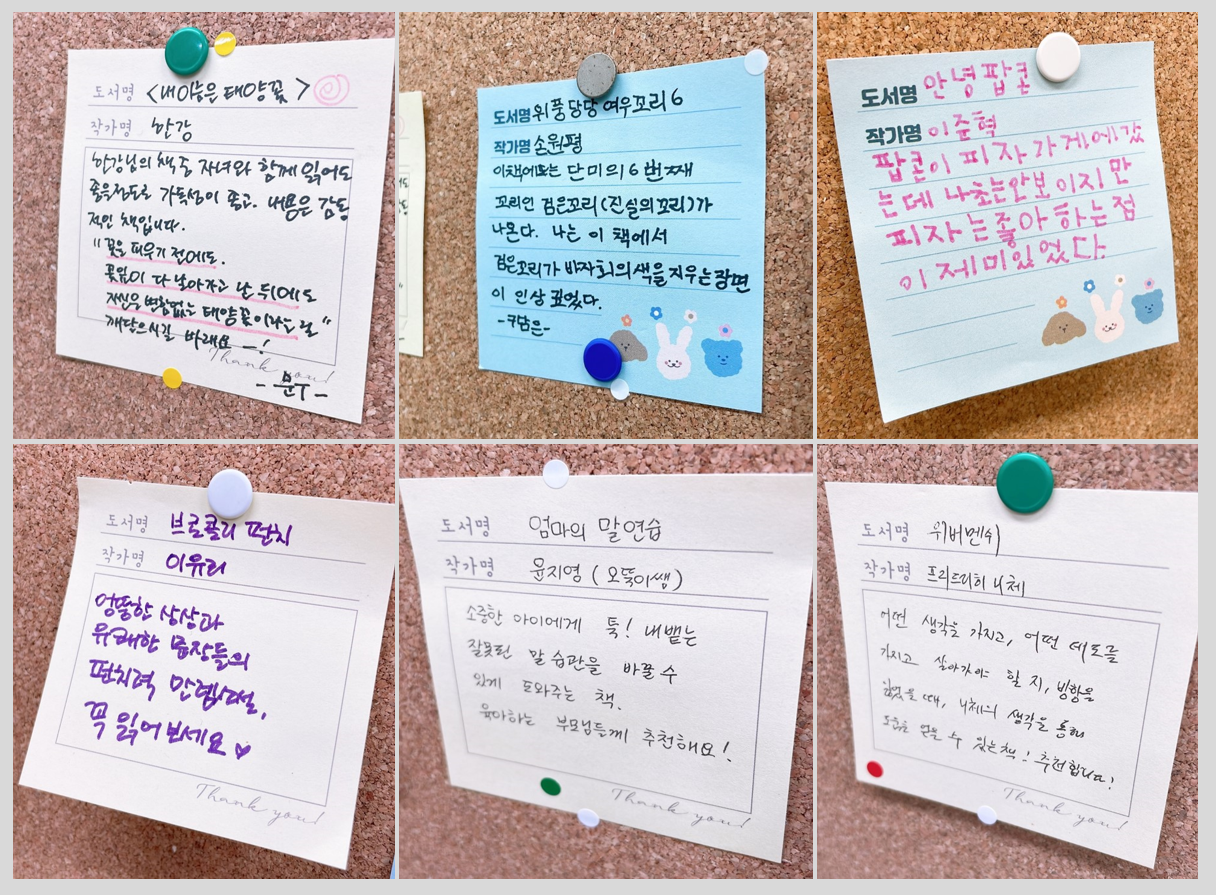 도서명 <내이름은 태양꽃>
작가명 한강
한강님의 책을 자녀와 함께 읽어도
좋을정도로 가독성이 좋고. 내용은 감동
적인 책입니다.
"꽃을 피우기 전에도.
꽃잎이 다 날아가고 난 뒤에도
자신은 변함없는 태양꽃이라는 걸"
깨닫으시길 바래요 ㅡ!
Thank you!
도서명 위풍당당 여우꼬리 6
작가명 손원평
이책에는 단미의 6번째
꼬리인 검은꼬리(진실의꼬리)가
나온다. 나는 이 책에서
검은꼬리가 바자회의 색을 지우는 장면
이 인상 깊었다.
도서명 안녕 팝콘
작가명 이준혁
팝콘이 피자가게에갔
는데 나초는안보이지만
피자는좋아하는점
이 제미있었다.
도서명 브로콜리 펀치
작가명 이유리
엉뚱한 상상과
유쾌한 문장들의
펀치력 만렙소설,
꼭 읽어보세요 ♥
Thank you!
도서명 엄마의 말연습
작가명 윤지영 (오뚝이쌤)
소중한 아이에게 툭! 내뱉는
잘못된 말 습관을 바꿀 수
있게 도와주는 책.
육아하는 부모님들께 추천해요!
Thank you!
도서명 위버멘쉬
작가명 프리드리히 니체
어떤 생각을 가지고, 어떤 태도를
가지고 살아가야 할 지, 방향을
잃었을 때, 니체의 생각을 통해
도움을 얻을 수 있는책! 추천합니다!
Thank you!